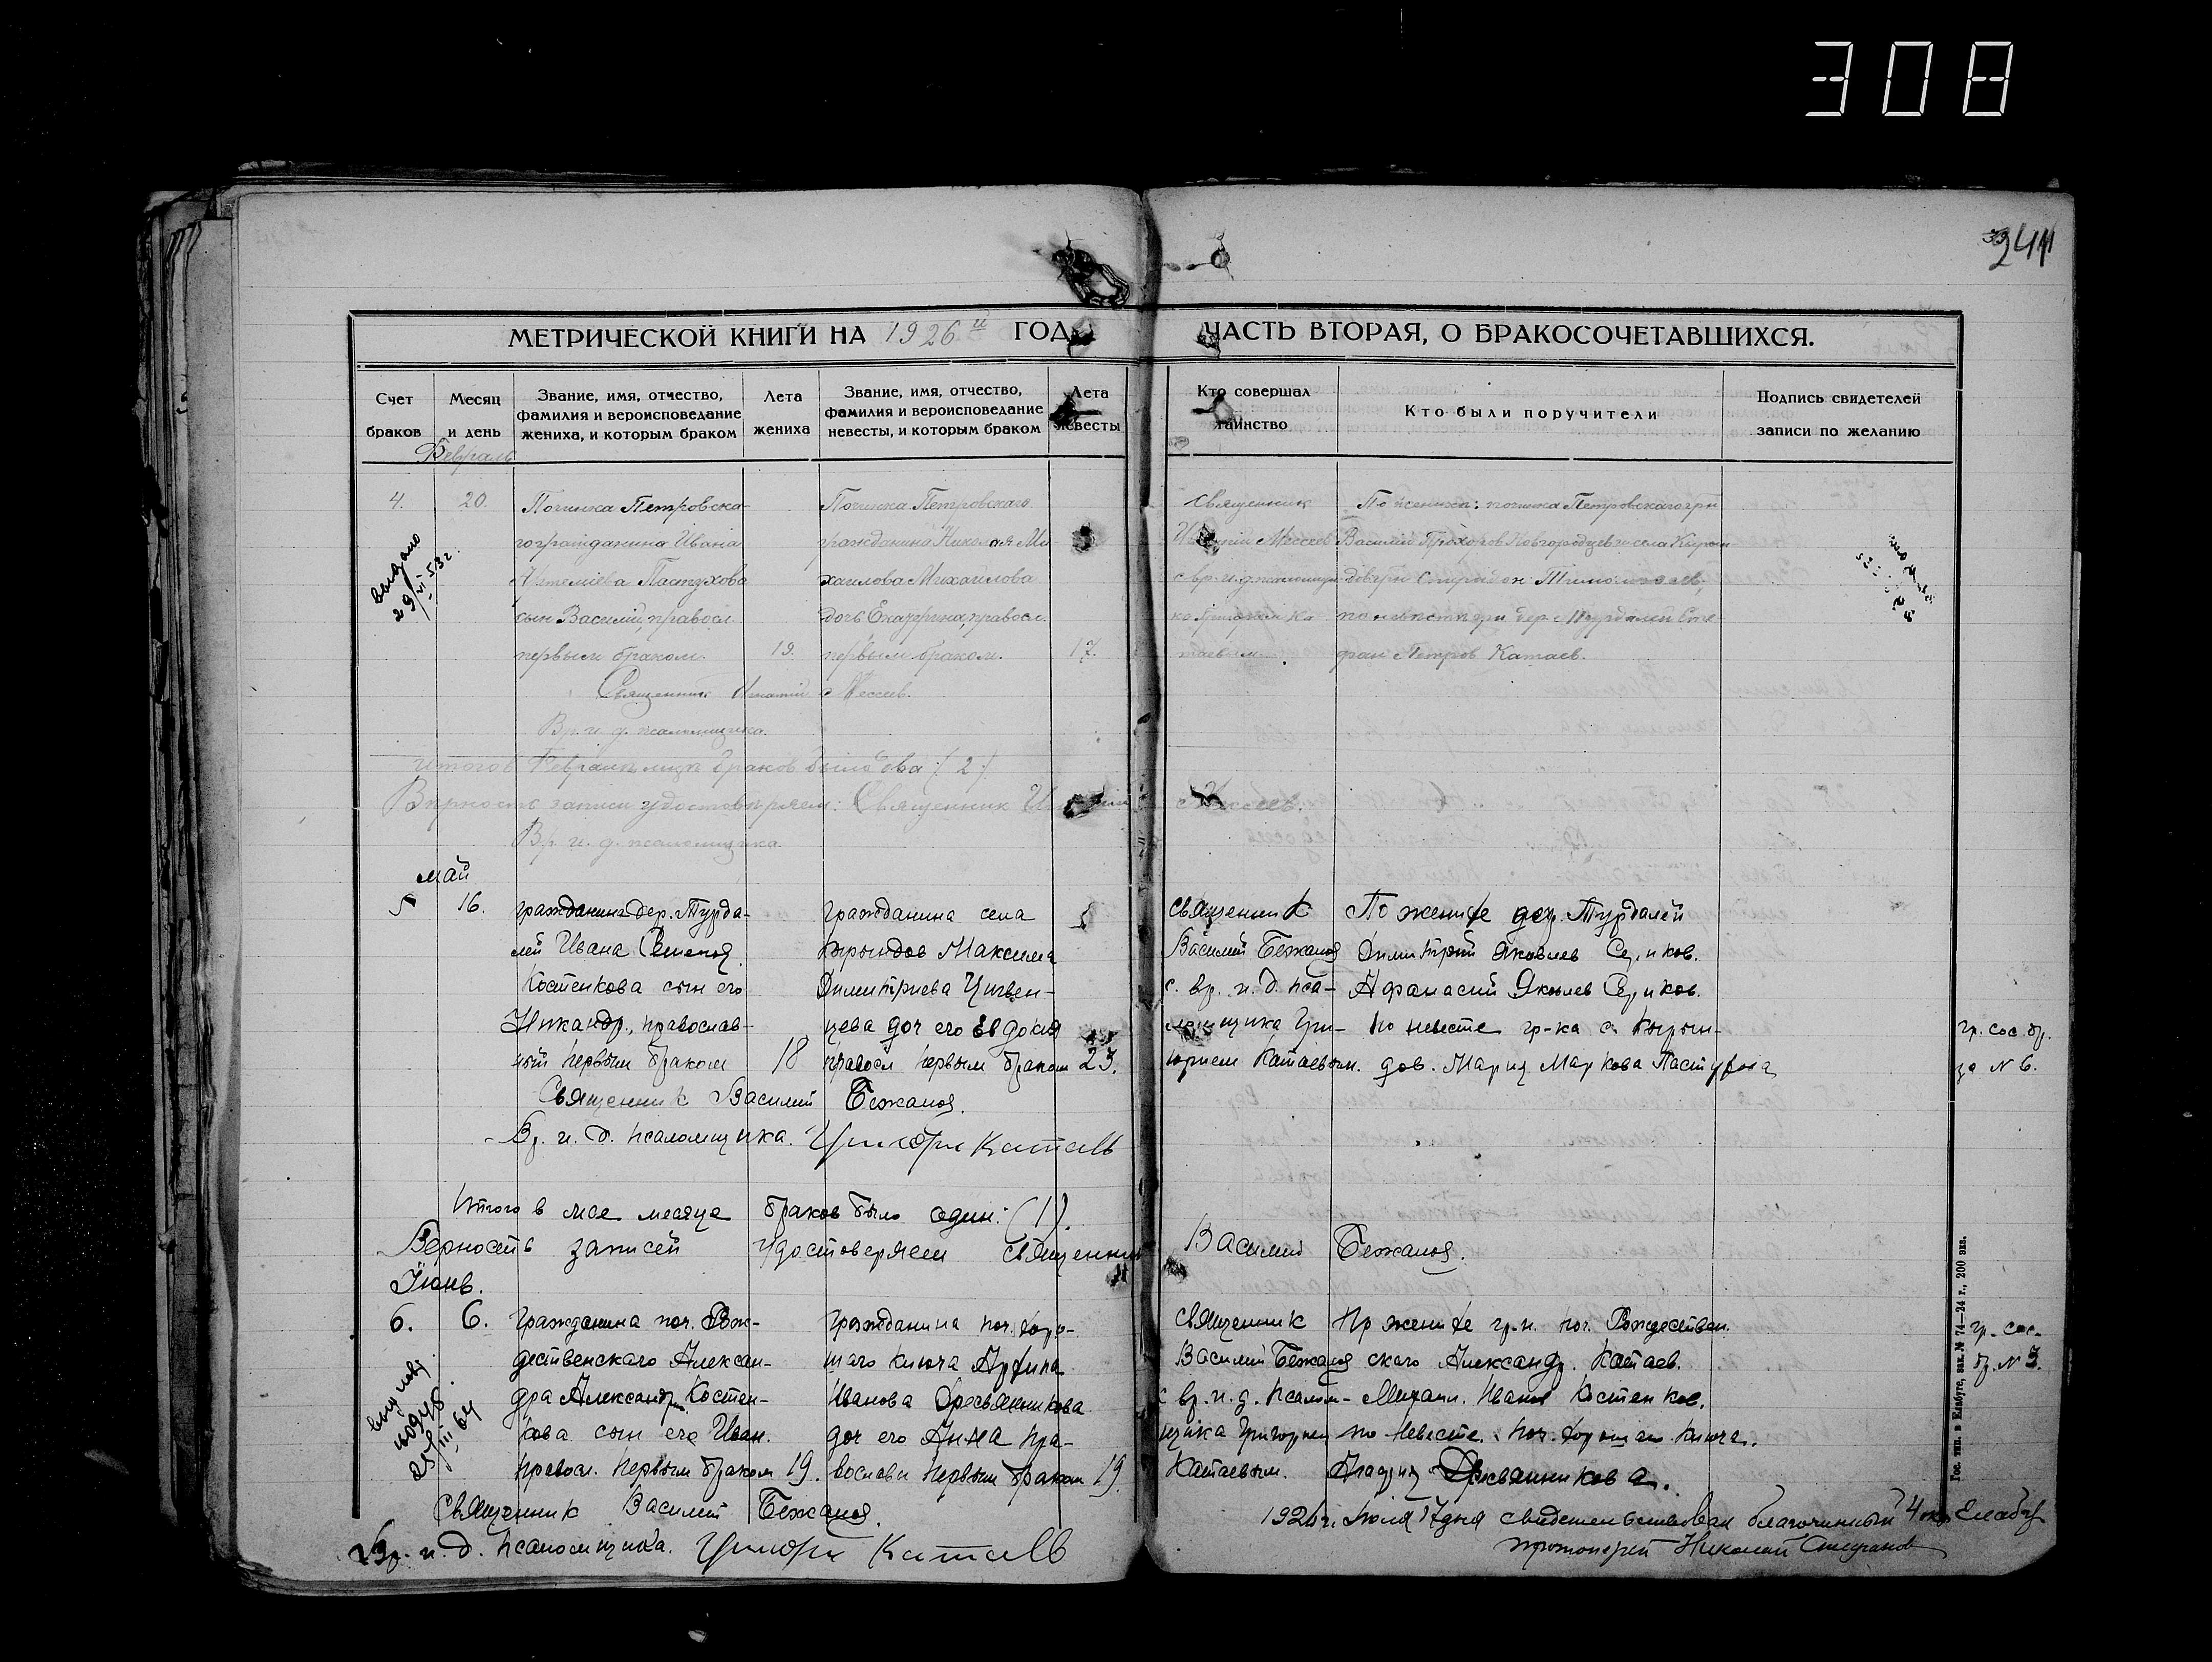 308
244
МЕТРИЧЕСКОЙ КНИГИ НА 1926й ГОД
ЧАСТЬ ВТОРАЯ, О БРАКОСОЧЕТАВШИХСЯ.
Счет браков
Месяц и день
Звание, имя, отчество,
фамилия и вероисповедание
жениха, и которым браком
Лета жениха
Звание, имя, отчество,
фамилия и вероисповедание
невесты, и которым браком
Лета невесты
Кто совершал таинство
Кто были поручители
Подпись свидетелей
записи по желанию
Февраль
4. 20.
Починка Петровска-
го гражданина Ивана
Артемиева Пастухова
сын Василий, правосл.
первым браком. 19.
Починка Петровскаго
гражданина Николая Ми-
хаилова Михаилова
дочь Екатерина, правосл.
первым браком. 17.
Священник
с вр. и. д. псаломщи-
ко Григорием Ка-
таевым.
По женихе: починка Петровскаго гр-н
Василий Прохоров Новгородцев и села Кырын-
довъ гр-н Спиридон
по невесте гр-н дер. Турдалей
Петров Катаев.
выдано
29/VI 53 г.
Священник Игнатий Мосеев.
Вр. и. д. псаломщика.
Итого в Феврале мце браков было два (2)
Верность записи удостоверяем: Священник Игнатий Мосеев.
Вр. и. д. псаломщика.
Май
5 16.
гражданина дер. Турда-
лей Ивана Семенов.
Костенкова сын его
Никандр, православ-
ный первым браком 18
гражданина села
Кырындов Максима
Димитриева
дочь его Евдокия
правосл первым браком 23.
священник
Василий Бежанов
с. вр. и. д. пса-
ломщика Гри-
горием Катаевым.
По женихе дер. Турдалей
Димитрий Яковлев Седиков.
Афанасий Яковлев Седиков.
по невесте гр-ка с. Кырын-
дов. Мария Маркова Пастухова
гр. сос. бр.
за № 6.
Священник Василий Бежанов.
Вр. и. д. псаломщика. Григори Катаевъ
Итого в мае месяце браков было один: (1).
Верность записей удостоверяем священник Василий Бежанов.
Июнь.
6. 6.
гражданина поч. Рож-
дественскаго Алексан-
дра Александр. Костен-
кова сын его Иван.
правосл. первым браком 19.
гражданина поч. Хоро-
шаго Ключа
Иванова Дресвянникова
доч его Анна пра-
вославн первым браком 19.
священник
Василий Бежанов
с вр. и. д. псалом-
щика Григорием
Катаевым.
По женихе гр. н. поч. Рождествен.
скаго Александр. Катаев.
Михаил. Иванов Костенков.
по невесте. поч. Хорошаго Ключа.
Дресвянникова.
гр. сос.
бр. № 3.
28/III 64
Священник Василий Бежанов.
Вр. и. д. псаломщика. Григори Катаевъ
1926 г. Июля 17 дня свидетельствовал благочинный 4 окр. Елабуж
протоиерей Николай
Гос. тип. в Елабуге, зак. № 74—24 г., 200 экз.